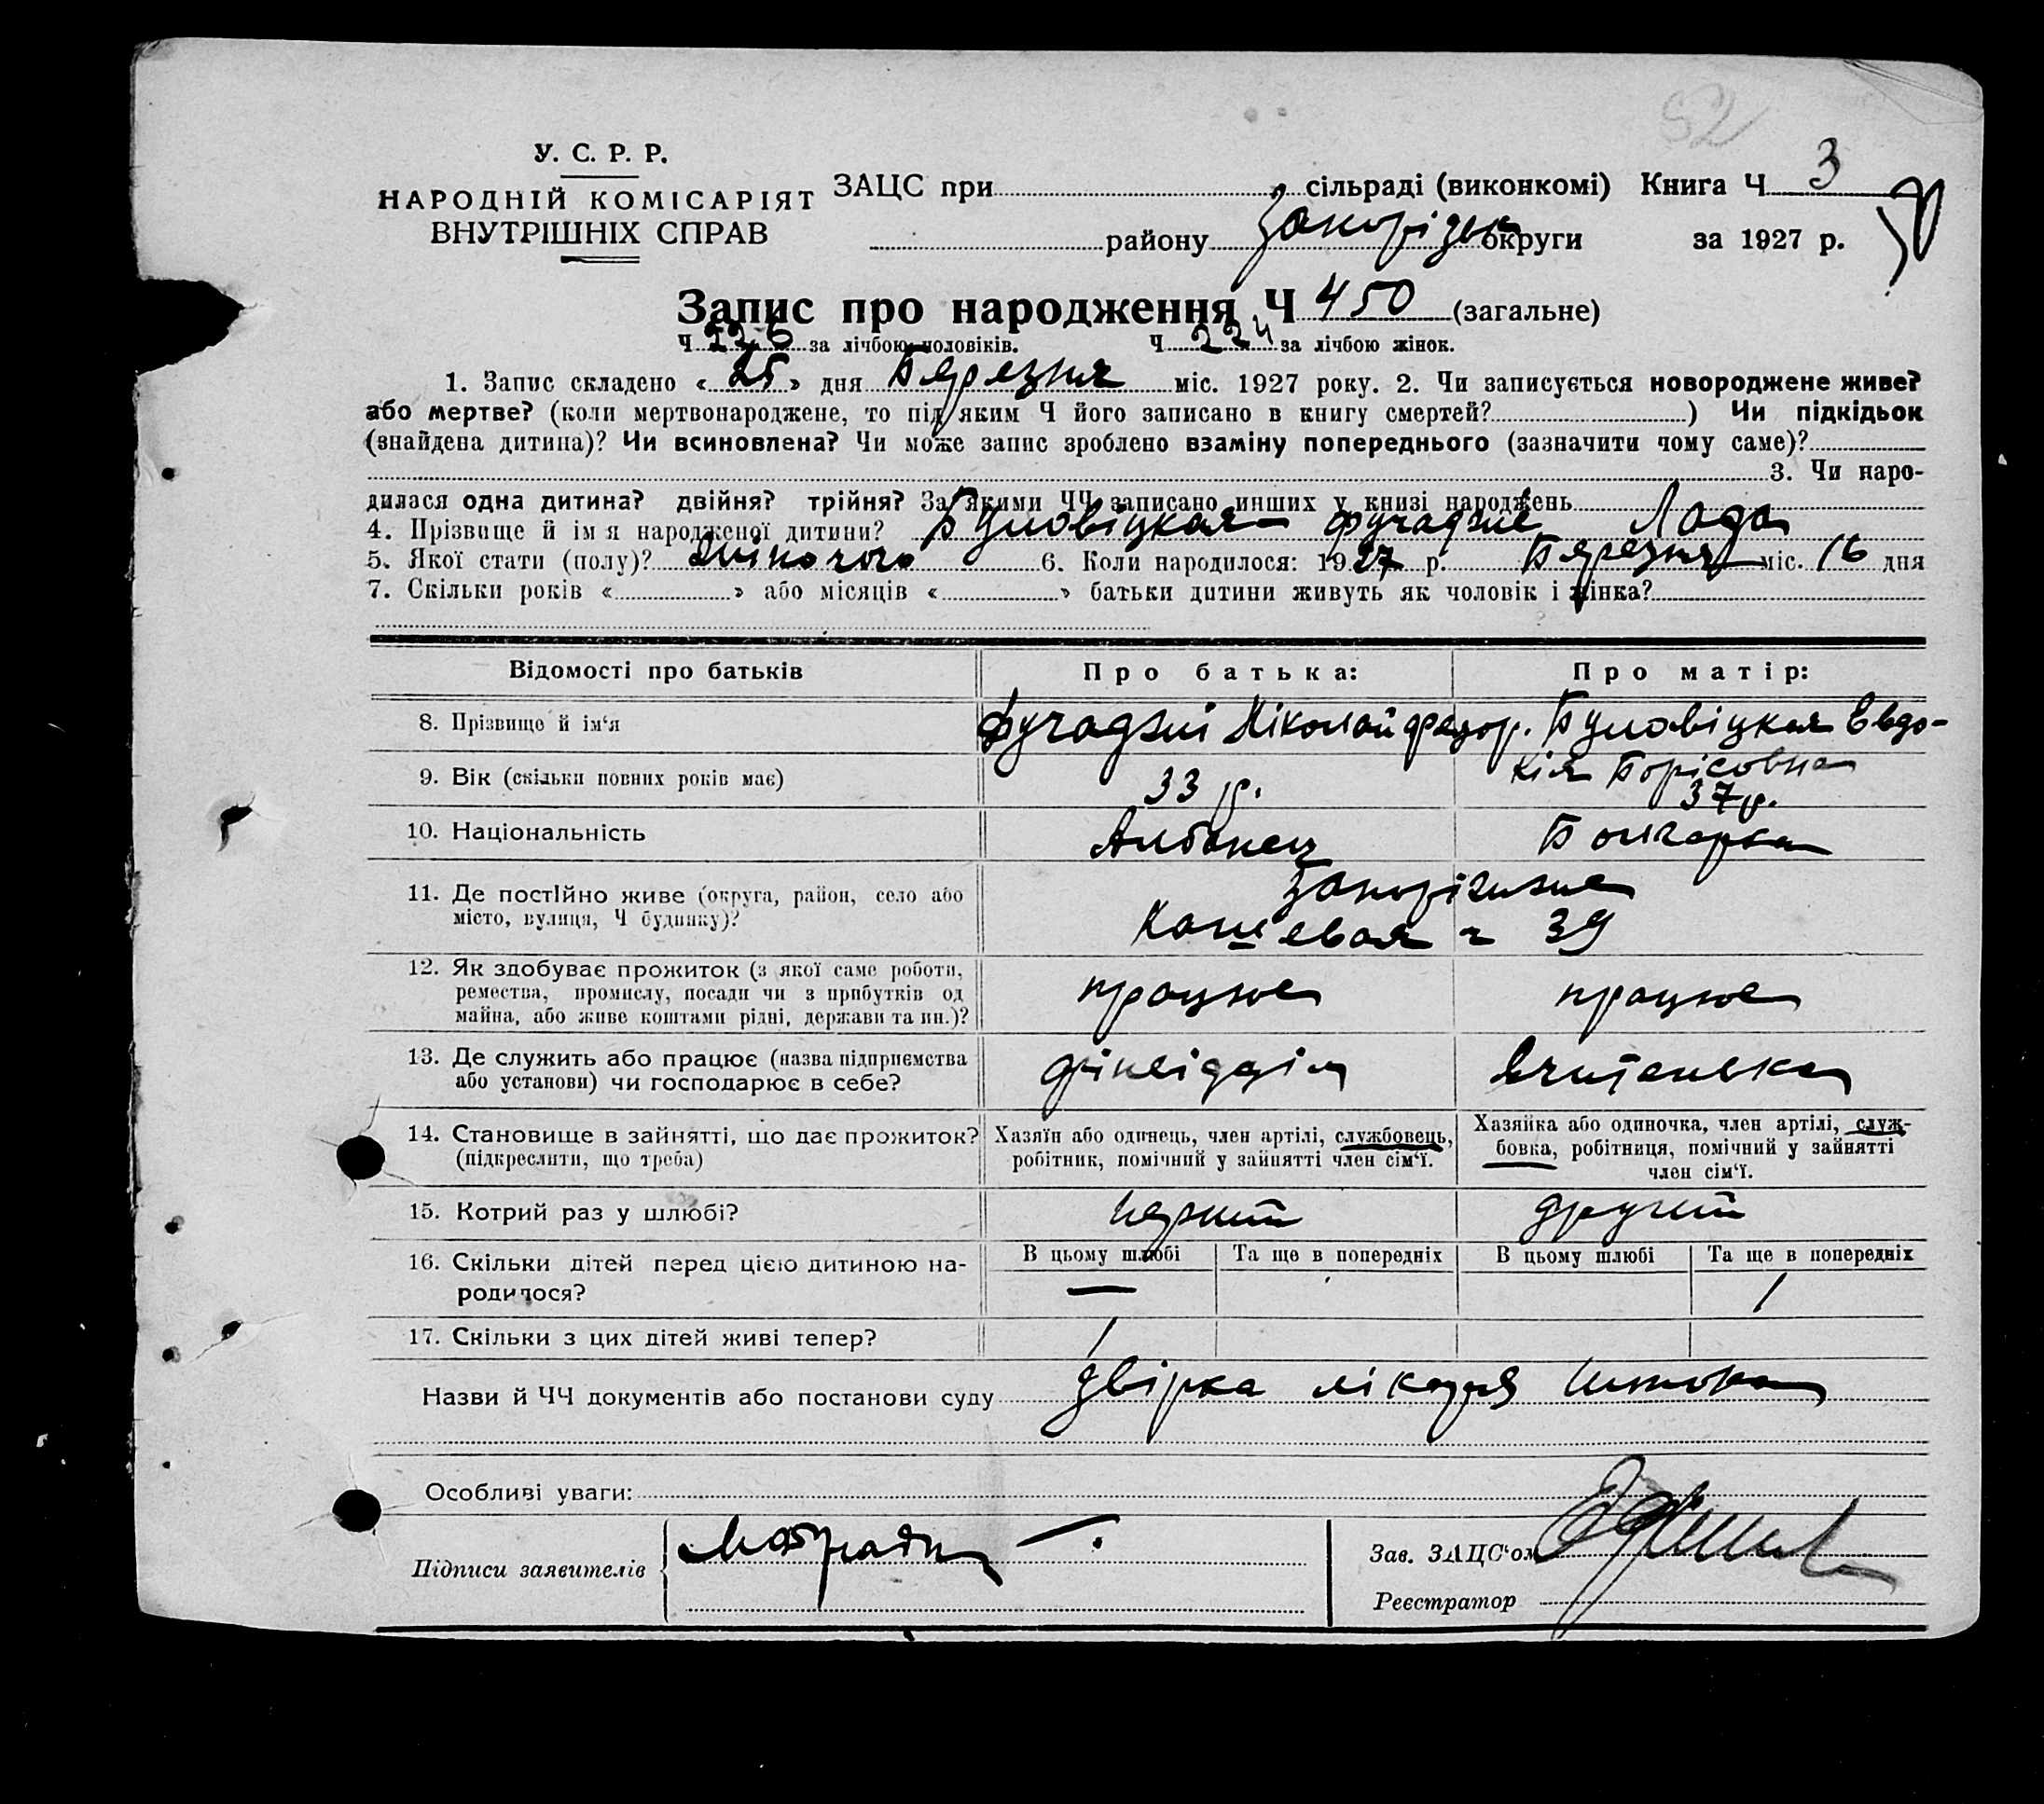 52
У. С. Р. Р.
НАРОДНІЙ КОМІСАРІЯТ
ВНУТРІШНІХ СПРАВ
ЗАЦС при сільраді (виконкомі) Книга Ч 3
району Запорізьк округи за 1927 р.
Запис про народження Ч 450 (загальне)
Ч 226 за лічбою чоловіків. Ч 224 за лічбою жінок.
1. Запис складено « 25 » дня Березня міс. 1927 року. 2. Чи записується новороджене живе?
або мертве? (коли мертвонароджене, то під яким Ч його записано в книгу смертей? ) Чи підкідьок
(знайдена дитина)? Чи всиновлена? Чи може запис зроблено взаміну попереднього (зазначити чому саме)?
3. Чи наро-
дилася одна дитина? двійня? трійня? За якими ЧЧ записано инших у книзі народжень
4. Прізвище й ім я народженої дитини? Буловіцкая- Фучаджи Лада
5. Якої стати (полу)? жіночого 6. Коли народилося: 1927 р. Березня міс. 16 дня
7. Скільки років « » або місяців « » батьки дитини живуть як чоловік і жінка?
Відомості про батьків Про батька: Про матір:
8. Прізвище й ім‘я Фучаджи Ніколай Федор. Буловіцкая Евдо-
кія Борісовна
9. Вік (скільки повних років має) 33 р. 37 р.
10. Національність Албанец Болгарка
11. Де постійно живе (округа, район, село або
місто, вулиця, Ч будинку)?
Запоріжжє
Кошевая ч 39
12. Як здобуває прожиток (з якої саме роботи,
ремества, промислу, посади чи з прибутків од
майна, або живе коштами рідні, держави та ин.)?
працює працює
13. Де служить або працює (назва підприємства
або установи) чи господарює в себе?
фінвідділ вчителька
14. Становище в зайнятті, що дає прожиток?
(підкреслити, що треба)
Хазяїн або одинець, член артілі, службовець,
робітник, помічний у зайнятті член сім‘ї.
Хазяйка або одиночка, член артілі, служ-
бовка, робітниця, помічний у зайнятті
член сім‘ї.
15. Котрий раз у шлюбі? перший другий
16. Скільки дітей перед цією дитиною на-
родилося?
В цьому шлюбі Та ще в попередніх В цьому шлюбі Та ще в попередніх
— 1
17. Скільки з цих дітей живі тепер? 1
Назви й ЧЧ документів або постанови суду довірка лікаря
Особливі уваги:
Підписи заявителів
Зав. ЗАЦС‘ом
Реєстратор